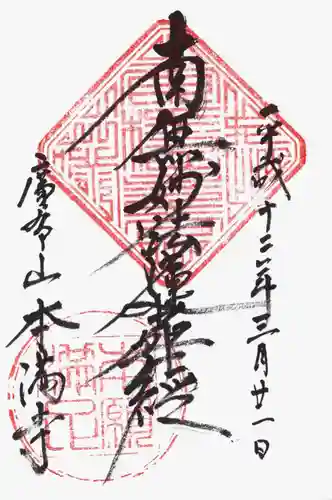 平成十二年三月廿一日
南無妙法蓮華経
廣布山 本満寺